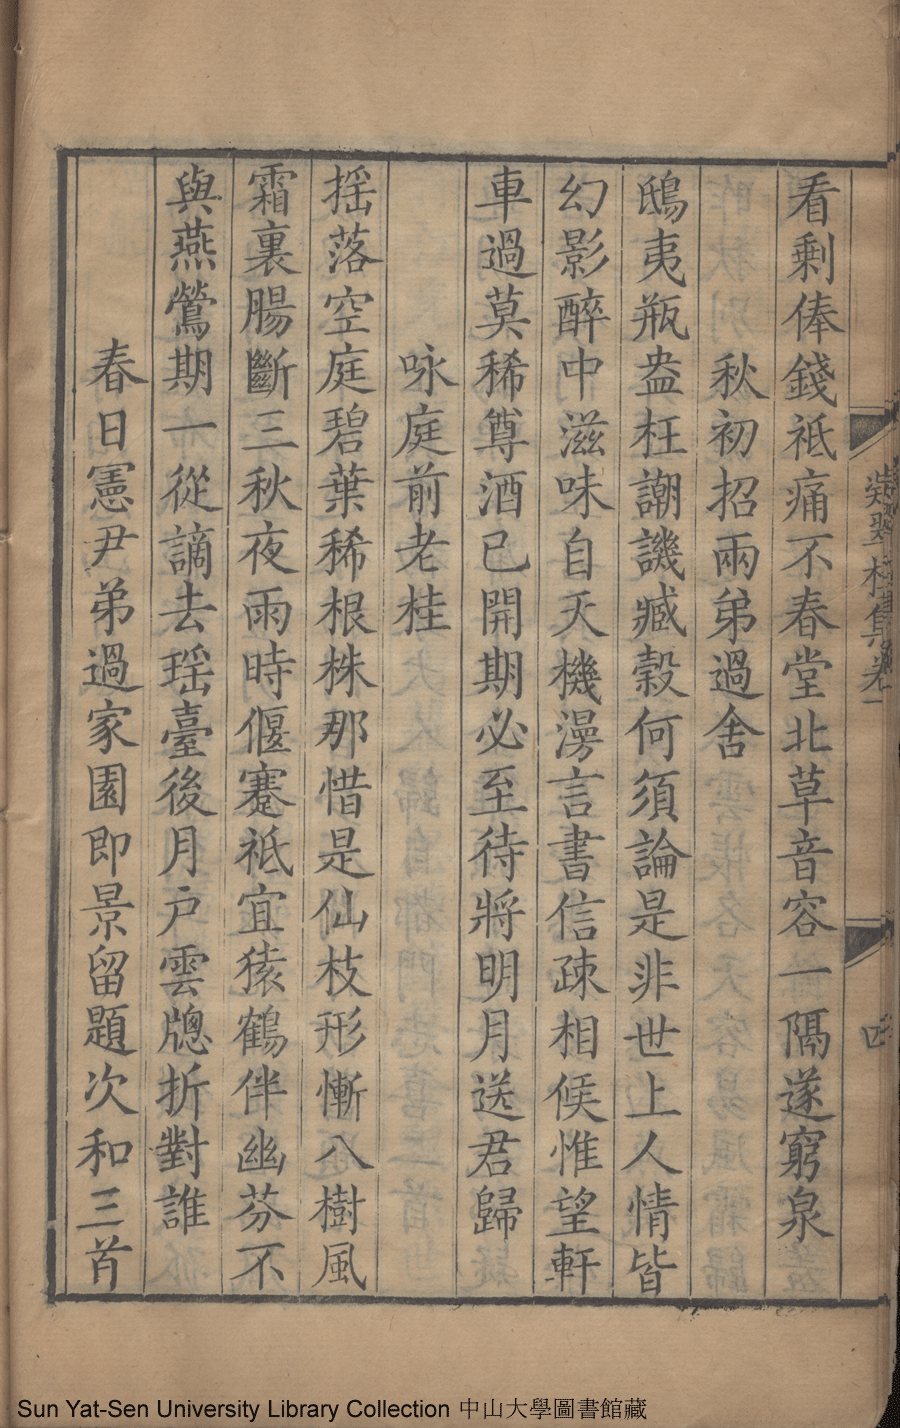 看剩俸錢祗痛不春堂北草音容一隅遂窮泉
秋初招兩弟過舍
鴟夷瓶盎枉謿譏臧穀何須論是非世上人情皆
幻影醉中滋味自天機漫言書信疎相候惟望軒
車過莫稀尊酒已開期必至待將明月送君歸
咏庭前老桂
揺落空庭碧葉稀根株那惜是仙枝形慚八樹風
霜裏腸斷三秋夜雨時偃蹇祗宜猿鶴伴幽芬不
與燕鶯期一從謫去瑶臺後月戶雲牕折對誰
春日憲尹弟過家園即景留題次和三首
集卷一
四
Sun Yat-Sen University Library Collection 中山大學圖書館藏